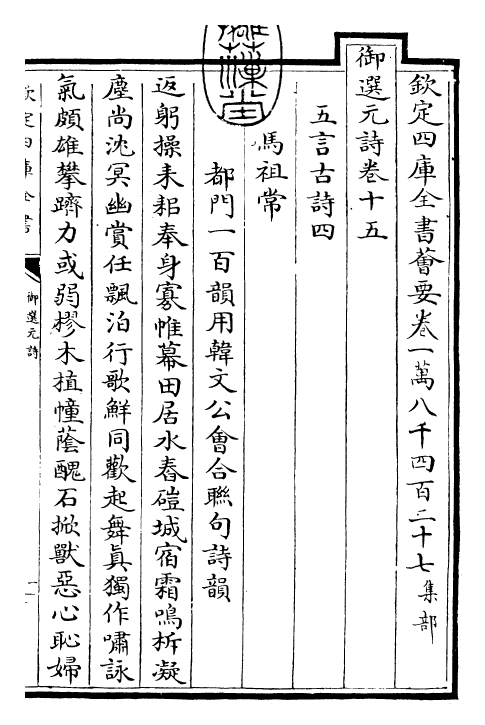 欽定四庫全書薈要卷一萬八千四百二十七集部
御選元詩卷十五
五言古詩四
馬祖常
都門一百韻用韓文公會合聯句詩韻
返躬操耒耜奉身寡帷幕田居水舂磑城宿霜鳴柝凝
塵尚沈冥幽賞任飄泊行歌鮮同歡起舞真獨作嘯詠
氣頗雄攀躋力或弱樛木植幢蔭醜石掀獸惡心恥婦
欽定四庫全書
御選元詩
一